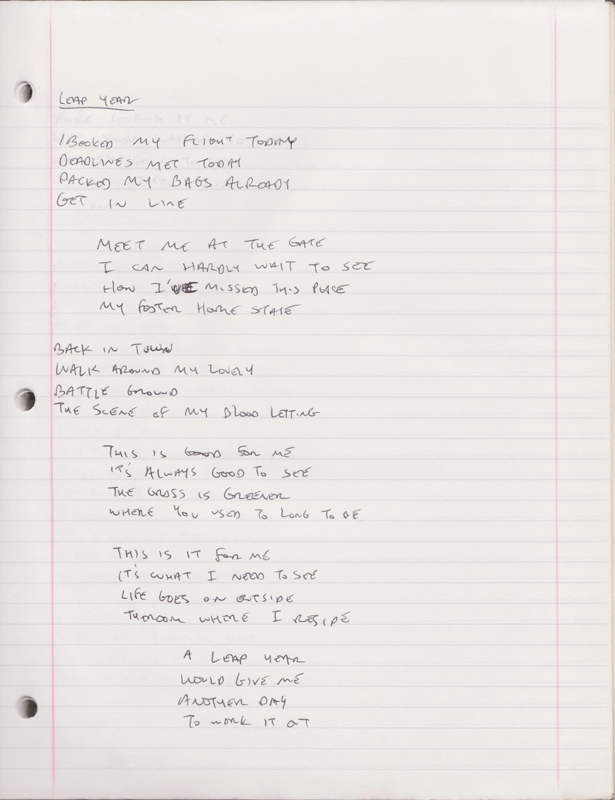 LEAP YEAR
I BOOKED MY FLIGHT TODAY
DEADLINES MET TODAY
PACKED MY BAGS ALREADY
GET IN LINE
MEET ME AT THE GATE
I CAN HARDLY WAIT TO SEE
HOW I'VE MISSED THIS PLACE
MY FOSTER HOME STATE
BACK IN TOWN
WALK AROUND MY LOVELY
BATTLE GROUND
THE SCENE OF MY BLOOD LETTING
THIS IS GOOD FOR ME
IT'S ALWAYS GOOD TO SEE
THE GRASS IS GREENER
WHERE YOU USED TO LONG TO BE
THIS IS IT FOR ME
IT'S WHAT I NEED TO SEE
LIFE GOES ON OUTSIDE
THEROOM WHERE I RESIDE
A LEAP YEAR
WOULD GIVE ME
ANOTHER DAY
TO WORK IT OT